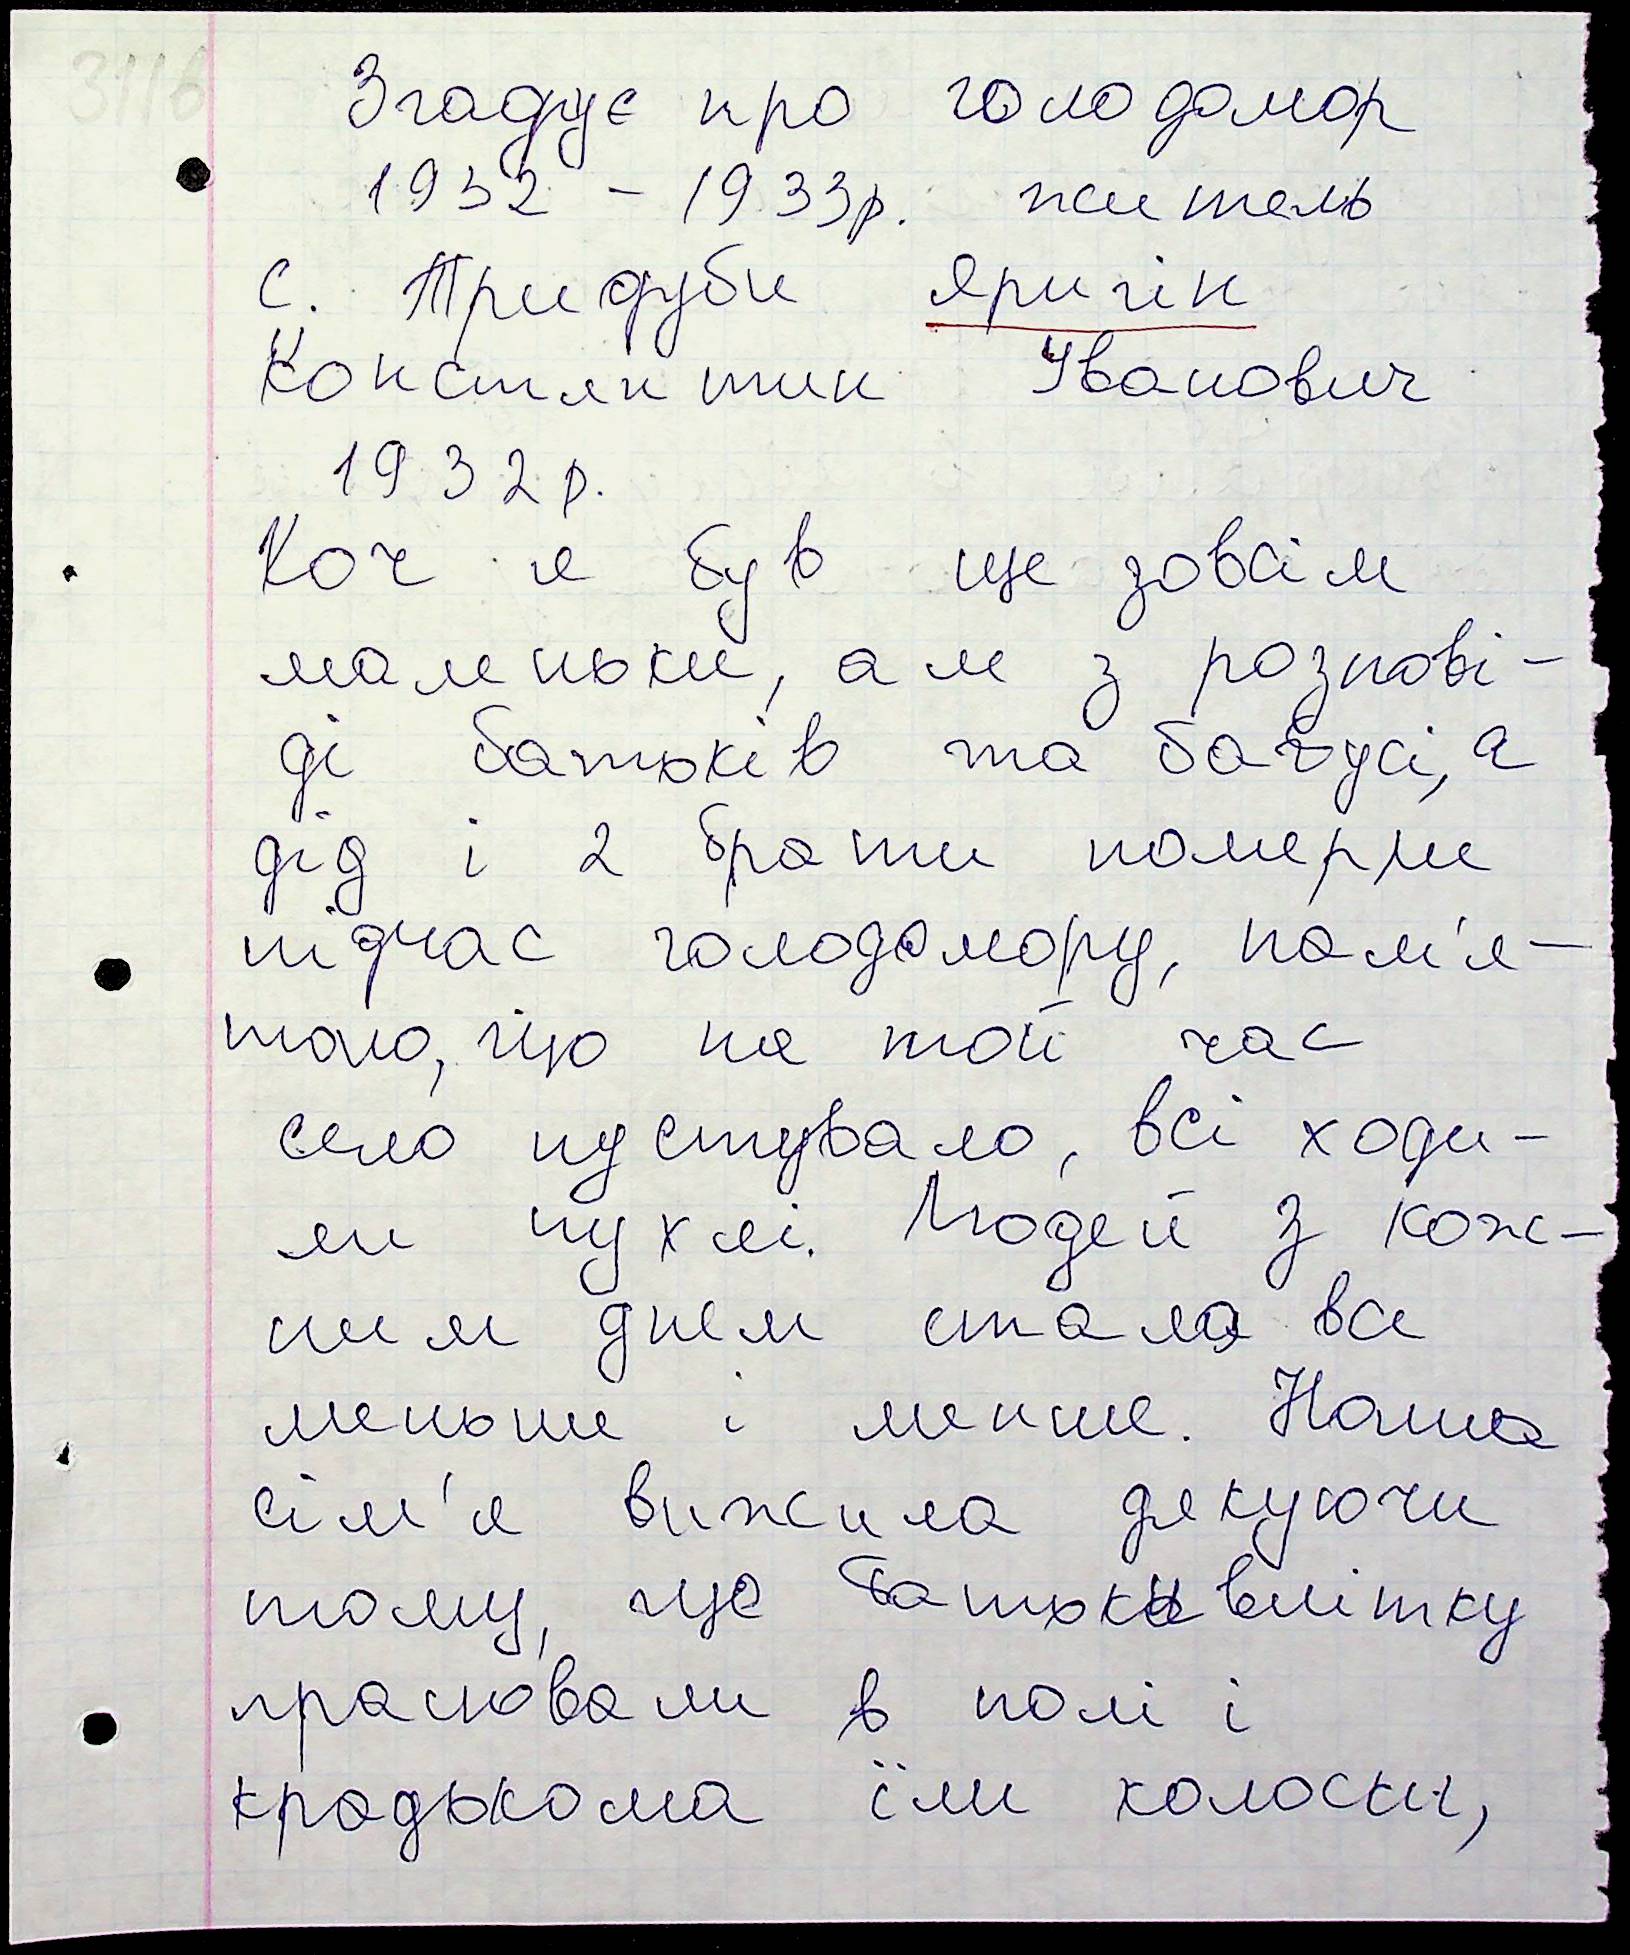 3116
Згадує про голодомор
1932 - 1933р. житель
с. Тридуби Яригін
Констянтин Іванович
1932р.
Коч я був ще зовсім
маленьки, але з розпові-
ді батьків та бабусі, а
дід і 2 брати померли
підчас голодомору, пам'я-
таю, що на той час
село пустувало, всі ходи-
ли пухлі. Людей з кож-
ним днем стало все
меньше і менше. Наша
сім'я вижила дякуючи
тому, що батьки влітку
працювали в полі і
крадькома їли колоски,